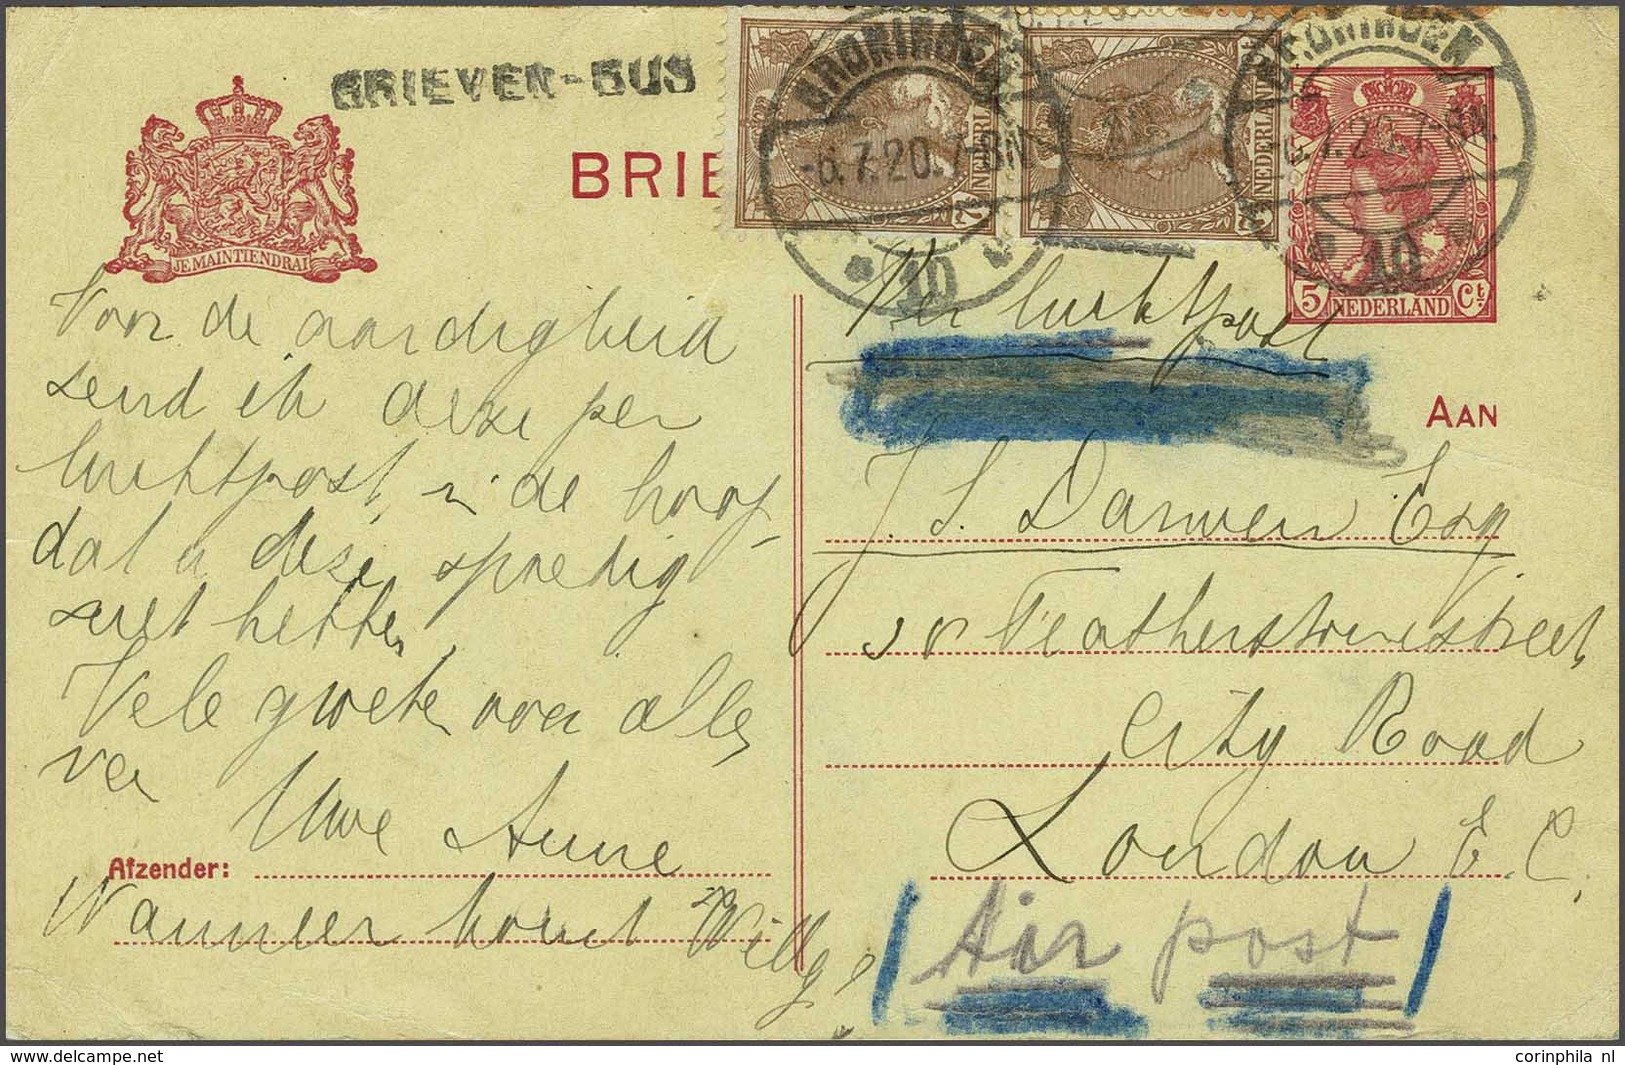 BRIEVEN-BUS
BRIE
JE MAINTIENDRAI
GRONINGEN
-6.7.20.7-8N
10
GRONINGEN
-6.7.20.7-8N
10
NEDERLAND
NEDERLAND
5 NEDERLAND Ct
Voor de aardigheid
send ik deze per
luchtpost, in de hoop
dat u deze spoedig
zult hebben.
Vele groeten voor alles
van
Uwe Anne
Afzender:
Wanneer komt Willy?
Per luchtpost
AAN
J. S. Darwen Esq
Featherstonestreet
City Road
London E. C.
Air post
corinphila nl